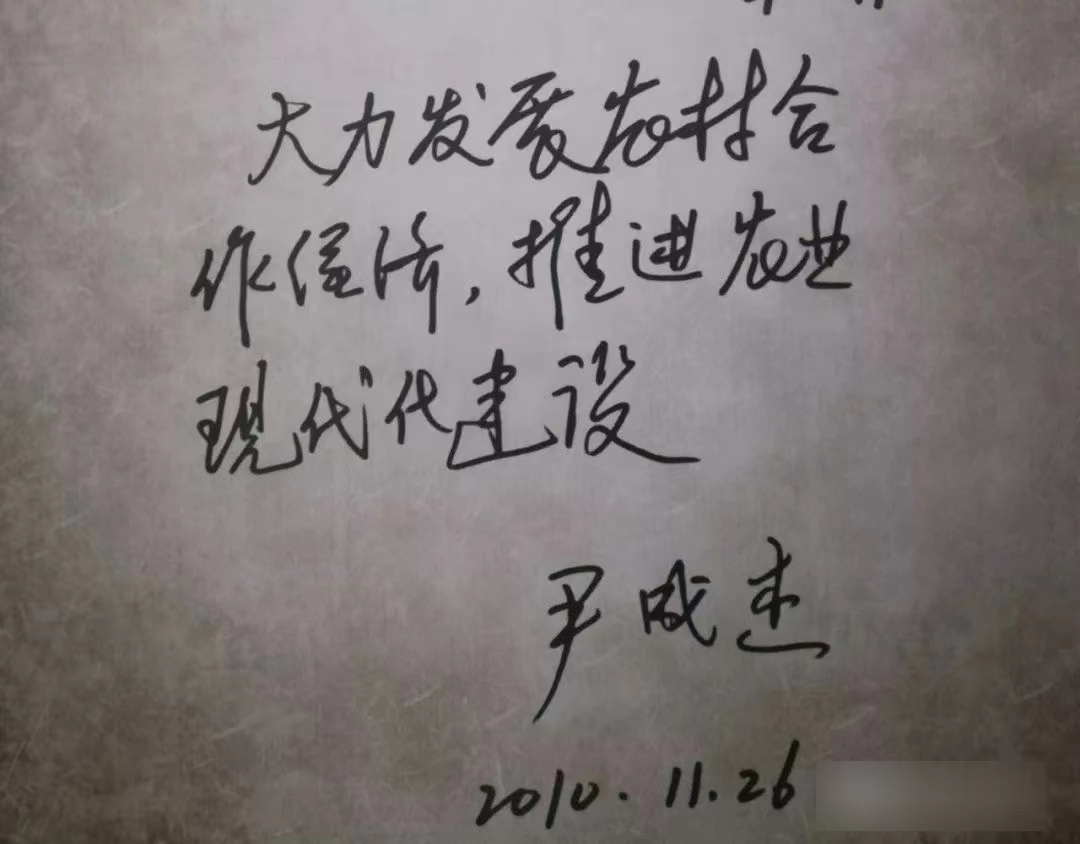 大力发展农村合
作经济，推进农业
现代化建设
尹成杰
2010.11.26